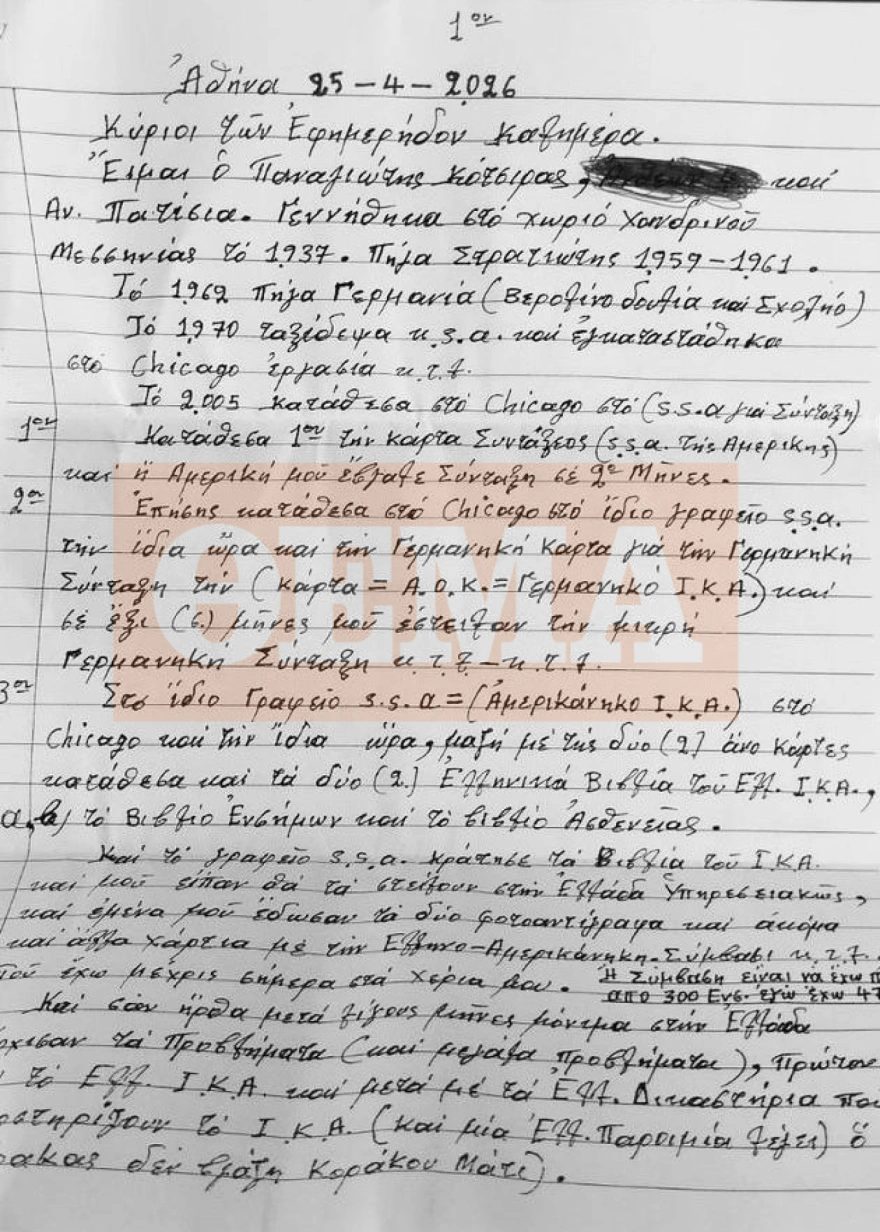 1ον
Ἀθήνα 25-4-2026
Κύριοι τῶν Ἐφημερήδον Καθημέρα.
Ἔιμαι ὁ Παναγιώτης Κότσιρας, καί
Αν. Πατίσια. Γεννήθηκα στό χωριό Χανδρινοῦ
Μεσσηνίας τό 1937. Πήγα Στρατιώτης 1959-1961.
Τό 1962 πήγα Γερμανία (Βερολίνο δουλιά και Σχολήο)
Τό 1970 ταξίδεψα u.s.a. καί ἐγκαταστάθηκα
στό Chicago ἐργασία κ.τ.λ.
Τό 2005 κατάθεσα στό Chicago στό (s.s.a γιά Σύνταξη)
1ον Κατάθεσα 1ον τήν κάρτα Συντάξεος (s.s.a. τῆς Αμερικης)
καί ἡ Αμερική μοῦ ἔβγαλε Σύνταξη σέ 2ο Μῆνες.
2ον Ἐπήσης κατάθεσα στό Chicago στό ἴδιο γραφεῖο s.s.a.
τήν ἴδια ὥρα καί τήν Γερμανηκή Κάρτα γιά τήν Γερμανηκή
Σύνταξη τήν (κάρτα = Α.Ο.Κ. = Γερμανηκό Ι.Κ.Α.) καί
σέ ἔξι (6.) μῆνες μοῦ ἔστειλαν τήν μικρή
Γερμανηκή Σύνταξη κ.τ.λ - κ.τ.λ.
3ον Στο ἴδιο Γραφείο s.s.a = (Ἀμερικάνηκο Ι.Κ.Α.) στό
Chicago καί τήν ἴδια ὥρα, μαζή μέ τής δύο (2) ἄνο κάρτες
κατάθεσα καί τά δύο (2.) Ἑλληνικά Βιβλία τοῦ Ελλ. Ι.Κ.Α.,
α,β) τό Βιβλίο Ἐνσήμων καί τό βιβλίο Ἀσθενείας.
Καί τό γραφεῖο s.s.a. κράτησε τά Βιβλία τοῦ Ι.Κ.Α.
καί μοῦ εἶπαν θά τά στείλουν στήν Ἑλλάδα Ὑπηρεσειακῶς,
καί ἐμένα μοῦ ἔδωσαν τά δύο φοτοαντίγραφα καί ἀκόμα
καί ἄλλα χάρτια μέ τήν Ελληνο-Αμερικάνηκη Σύμβασι κ.τ.λ.
Ποῦ ἔχω μέχρις σήμερα στά χέρια μου. Ἡ Σύμβαση είναι νά ἔχω
από 300 Ενσ. ἐγώ ἔχω 47
Καί σάν ἦρθα μετά λίγους μῆνες μόνιμα στήν Ἑλλάδα
ρχισαν τά προβλήματα (καί μεγάλα προβλήματα), πρώτον
τό Ελλ. Ι.Κ.Α. καί μετά μέ τά Ἑλλ. Δικαστήρια πού
οστηρίζουν τό Ι.Κ.Α. (καί μία Ἑλλ. Παροιμία λέγει) ὁ
ρακας δέν βγάζη Κοράκου Μάτι).
ΘΕΜΑ